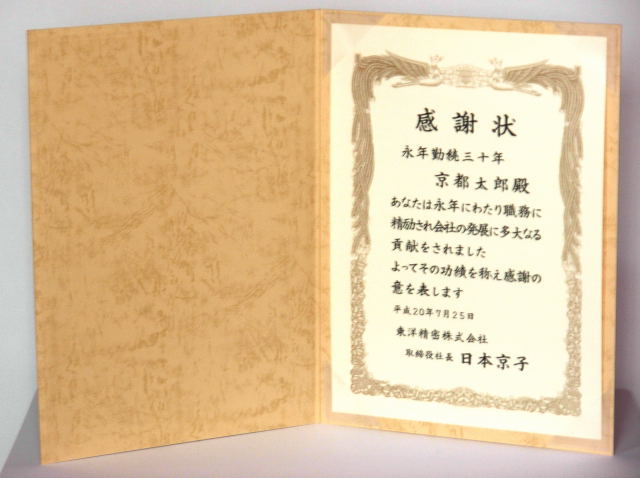 感謝状
永年勤続三十年
京都太郎殿
あなたは永年にわたり職務に
精励され会社の発展に多大なる
貢献をされました
よってその功績を称え感謝の
意を表します
平成20年7月25日
東洋精密株式会社
取締役社長 日本京子